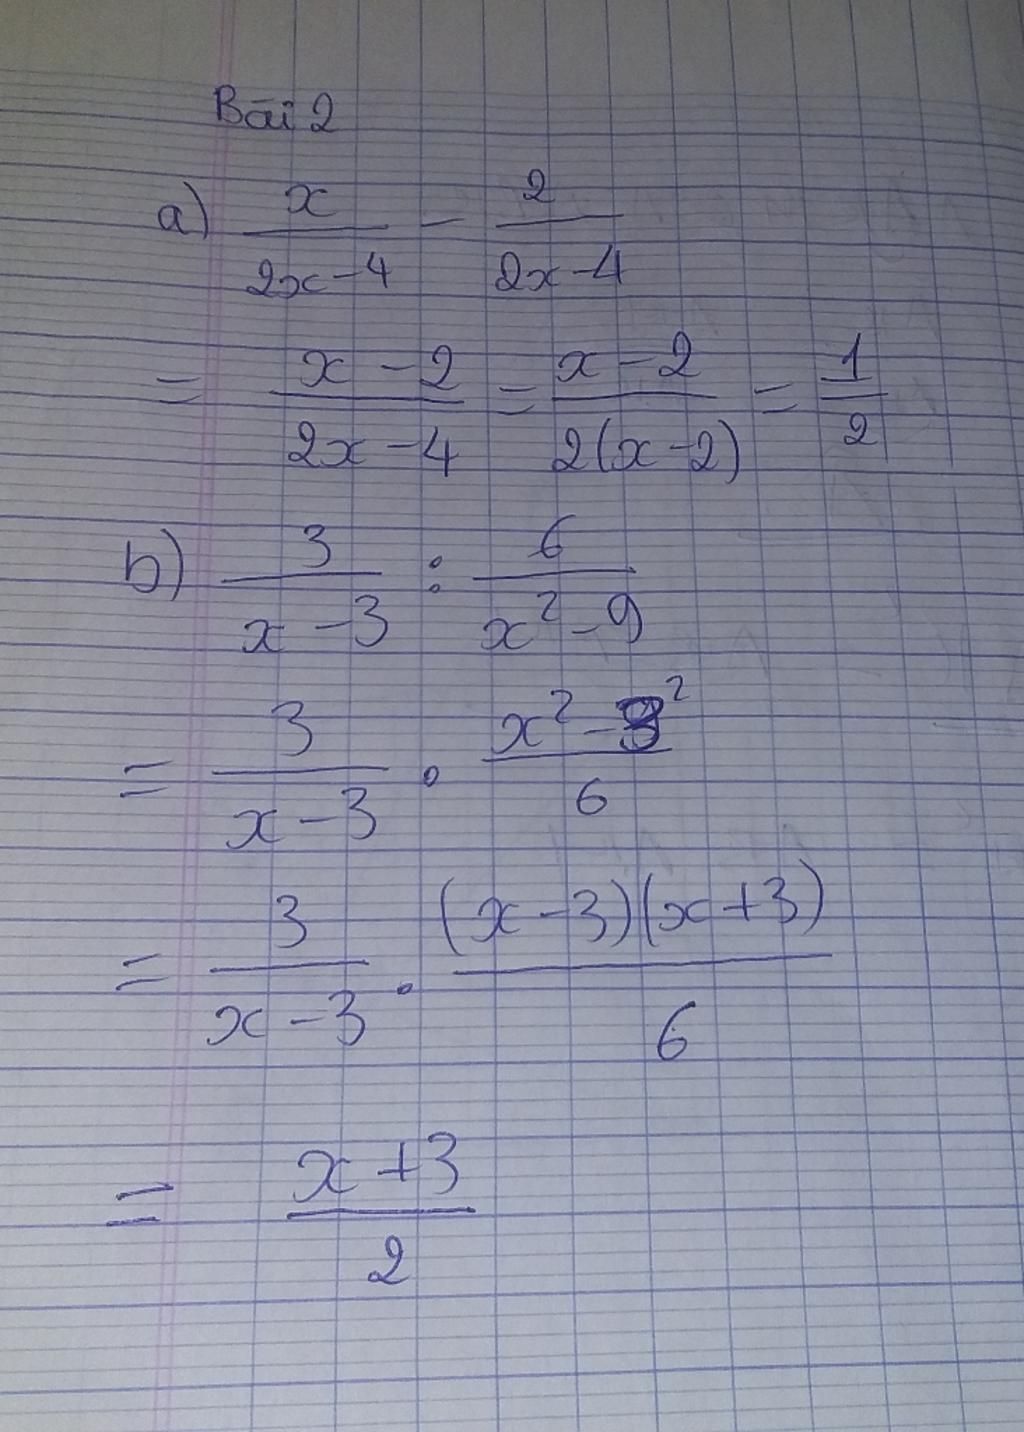 Bài 2
a) x/(2x-4) - 2/(2x-4)
= (x-2)/(2x-4) = (x-2)/(2(x-2)) = 1/2
b) 3/(x-3) : 6/(x²-9)
= 3/(x-3) . (x²-3²)/6
= 3/(x-3) . ((x-3)(x+3))/6
= (x+3)/2